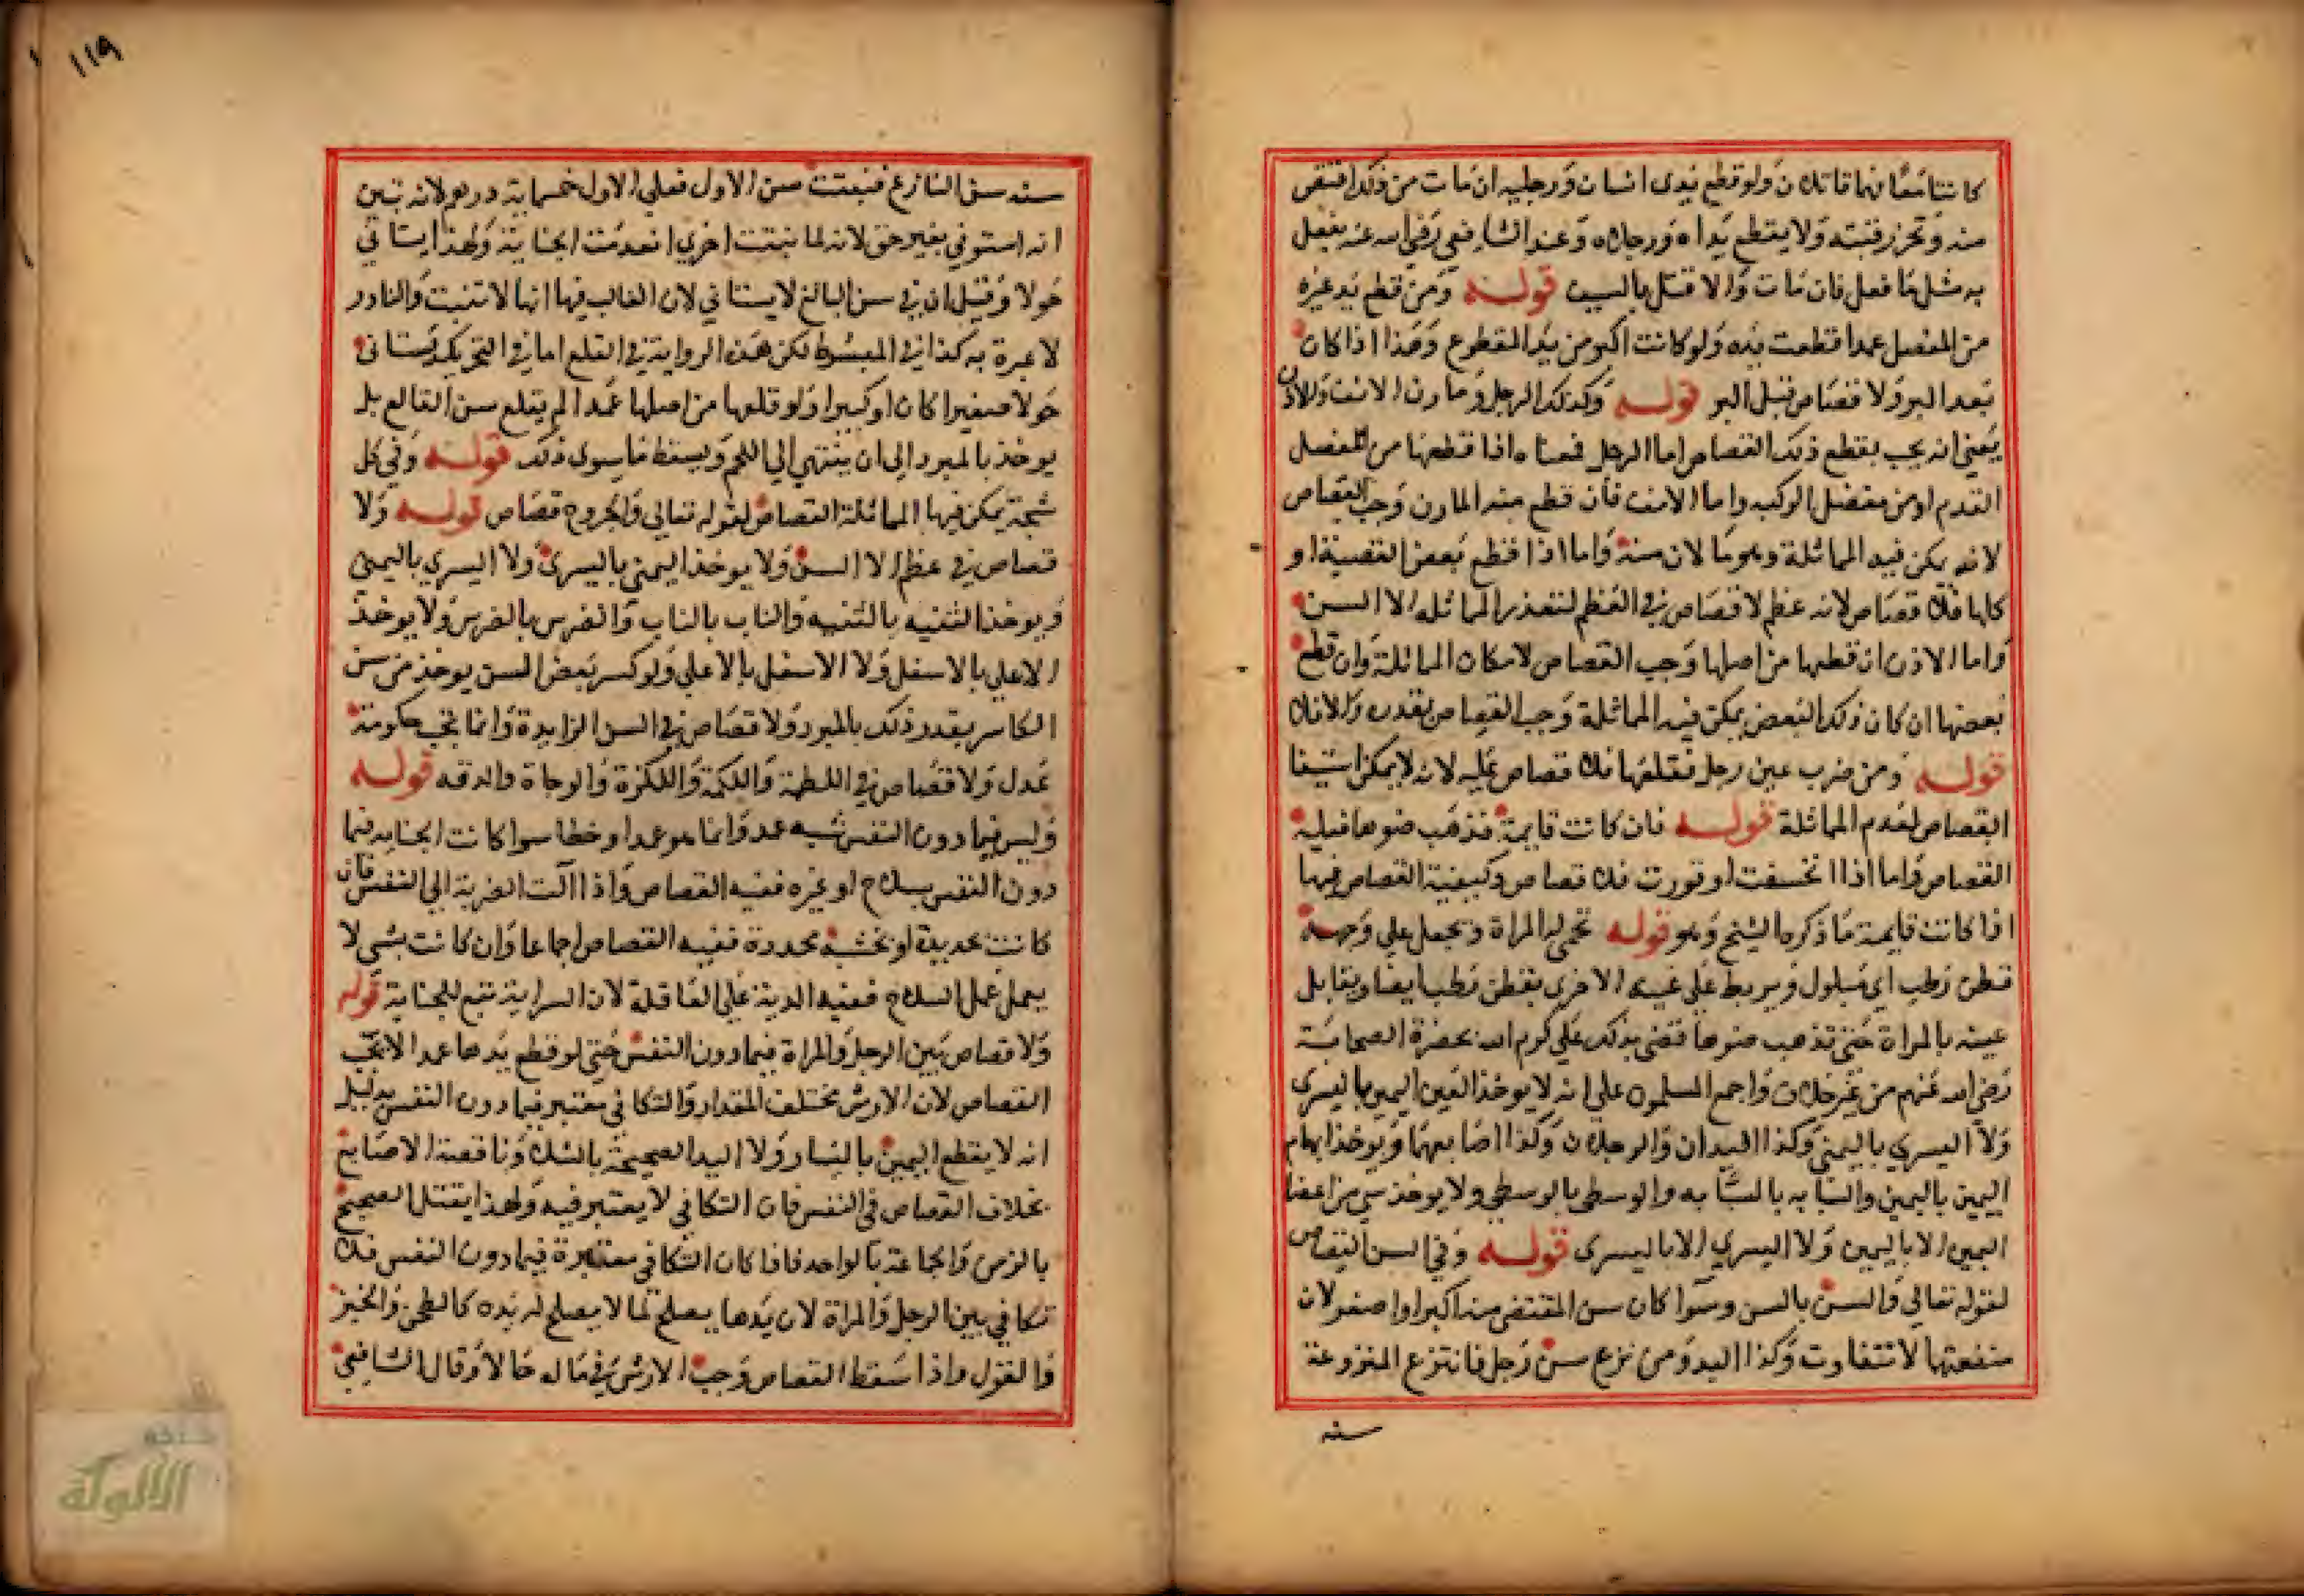 كانتا معا فهما قاتلان ولو قطع يدي انسان ورجليه ان مات من ذلك اقتص
منه وتحز رقبته ولا يقطع يداه ورجلاه وعند الشافعي رضي الله عنه يفعل
به مثل ما فعل فان مات والا قتل بالسيف قوله ومن قطع يد غيره
من المفصل عمدا قطعت يده ولو كانت اكبر من يد المقطوع وهذا اذا كان
بعد البرو لا قصاص قبل البر قوله وكذلك الرجل ومارن الانف والاذن
يعني انه يجب بقطع ذلك القصاص اما الرجل فمعناه اذا قطعها من المفصل
القدم او من مفصل الركبه واما الانف فان قطع منه المارن وجب القصاص
لانه يمكن فيه المماثلة وهو ما لان منه واما اذا قطع بعض القصبة او
كلها فلا قصاص لانه عظم لا قصاص في العظم لتعذر المماثله الا السن
واما الاذن ان قطعها من اصلها وجب القصاص لامكان المماثلة وان قطع
بعضها ان كان ذلك البعض يمكن فيه المماثلة وجب القصاص بقدره والا فلا
قوله ومن ضرب عين رجل فقلعها فلا قصاص عليه لانه لا يمكن استيفا
القصاص لعدم المماثلة قوله فان كانت قايمة فذهب ضوها فيلة
القصاص واما اذا انخسفت او قورت فلا قصاص وكيفية القصاص فيها
اذا كانت قايمة ما ذكره الشيخ وهو قوله تحمى له المراة وتجعل على وجهه
قطن رطب اي مبلول ويربط على عينه الاخرى بقطن رطب ايضا ويقابل
عينه بالمراة حتى تذهب ضوها قضى بذلك علي كرم الله بحضرة الصحابة
رضي الله عنهم من غير خلاف واجمع المسلمون على انه لا يوخذ العين اليمين باليسرى
ولا اليسري باليمني وكذا اليدان والرجلان وكذا اصابعهما ويوخذ ابهام
اليمين باليمين والسبابه بالسبابه والوسطى بالوسطي ولا يوخذ شي من اعضا
اليمين الا باليمين ولا اليسري الا باليسرى قوله وفي السن القصاص
لقوله تعالي والسن بالسن وسوا كان سن المقتص منه اكبر او اصغر لان
منفعتها لا تتفاوت وكذا اليد ومن نزع سن رجل فانتزع المنزوعة
سنه
١١٩
سنه سن النازع فنبتت سن الاول فعلي الاول خمسماية درهم لانه تبين
انه استوفي بغير حق لانه لما نبتت اخري انعدمت الجناية ولهذا يستاني
حولا وقيل ان في سن البالغ لا يستاني لان الغالب فيها انها لا تنبت والنادر
لا عبرة به كذا في المبسوط لكن هذه الرواية في القلع اما في التحريك يستانى
حولا صغيرا كان او كبيرا ولو قلعها من اصلها عمدا لم يقلع سن القالع بل
يوخذ بالمبرد الى ان ينتهي الي اللحم ويسقط ما سوى ذلك قوله وفي كل
شجة يمكن فيها المماثلة القصاص لقوله تعالي والجروح قصاص قوله ولا
قصاص في عظم الا السن ولا يوخذ اليمني باليسري ولا اليسري باليمني
ويوخذ الثنيه بالثنيه والناب بالناب والضرس بالضرس ولا يوخذ
الاعلي بالاسفل ولا الاسفل بالاعلي ولو كسر بعض السن يوخذ من سن
الكاسر بقدر ذلك بالمبرد ولا قصاص في السن الزايدة وانما يجب حكومة
عدل ولا قصاص في اللطمة واللكمة واللكزة والوجاة والدقه قوله
وليس فيما دون النفس شبه عمد وانما هو عمد او خطا سوا كانت الجنايه فيما
دون النفس بسلاح او غيره ففيه القصاص واذا آلت الضربة الي النفس فان
كانت بحديدة او بخشبه محددة ففيه القصاص اجماعا وان كانت بشي لا
يعمل عمل السلاح ففيه الدية علي العاقلة لان السراية تتبع للجناية قوله
ولا قصاص بين الرجل والمراة فيما دون النفس حتي لو قطع يدها عمدا لا يجب
القصاص لان الارش مختلف المقدار والتكافي معتبر فيما دون النفس بدليل
انه لا يقطع اليمين باليسار ولا اليد الصحيحة بالشلا وناقصة الاصابع
بخلاف القصاص في النفس فان التكافي لا يعتبر فيه ولهذا يقتل الصحيح
بالزمن والجماعة بالواحد فاذا كان التكافي معتبرة فيما دون النفس فلا
تكافي بين الرجل والمراة لان يدها يصلح لما لا يصلح له يده كالطحن والخبز
والغزل واذا سقط القصاص وجب الارش في ماله حالا وقال الشافعي
الألوكة